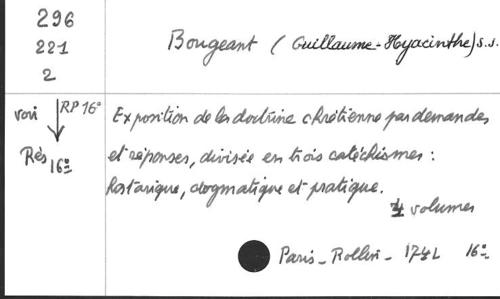 296
221
2
Bougeant (Guillaume-Hyacinthe) s.j.
voir RP 16°
Rés 16°
Exposition de la doctrine chrétienne par demandes
et réponses, divisée en trois catéchismes :
historique, dogmatique et pratique.
4 volumes
Paris - Rollin - 1741 16°